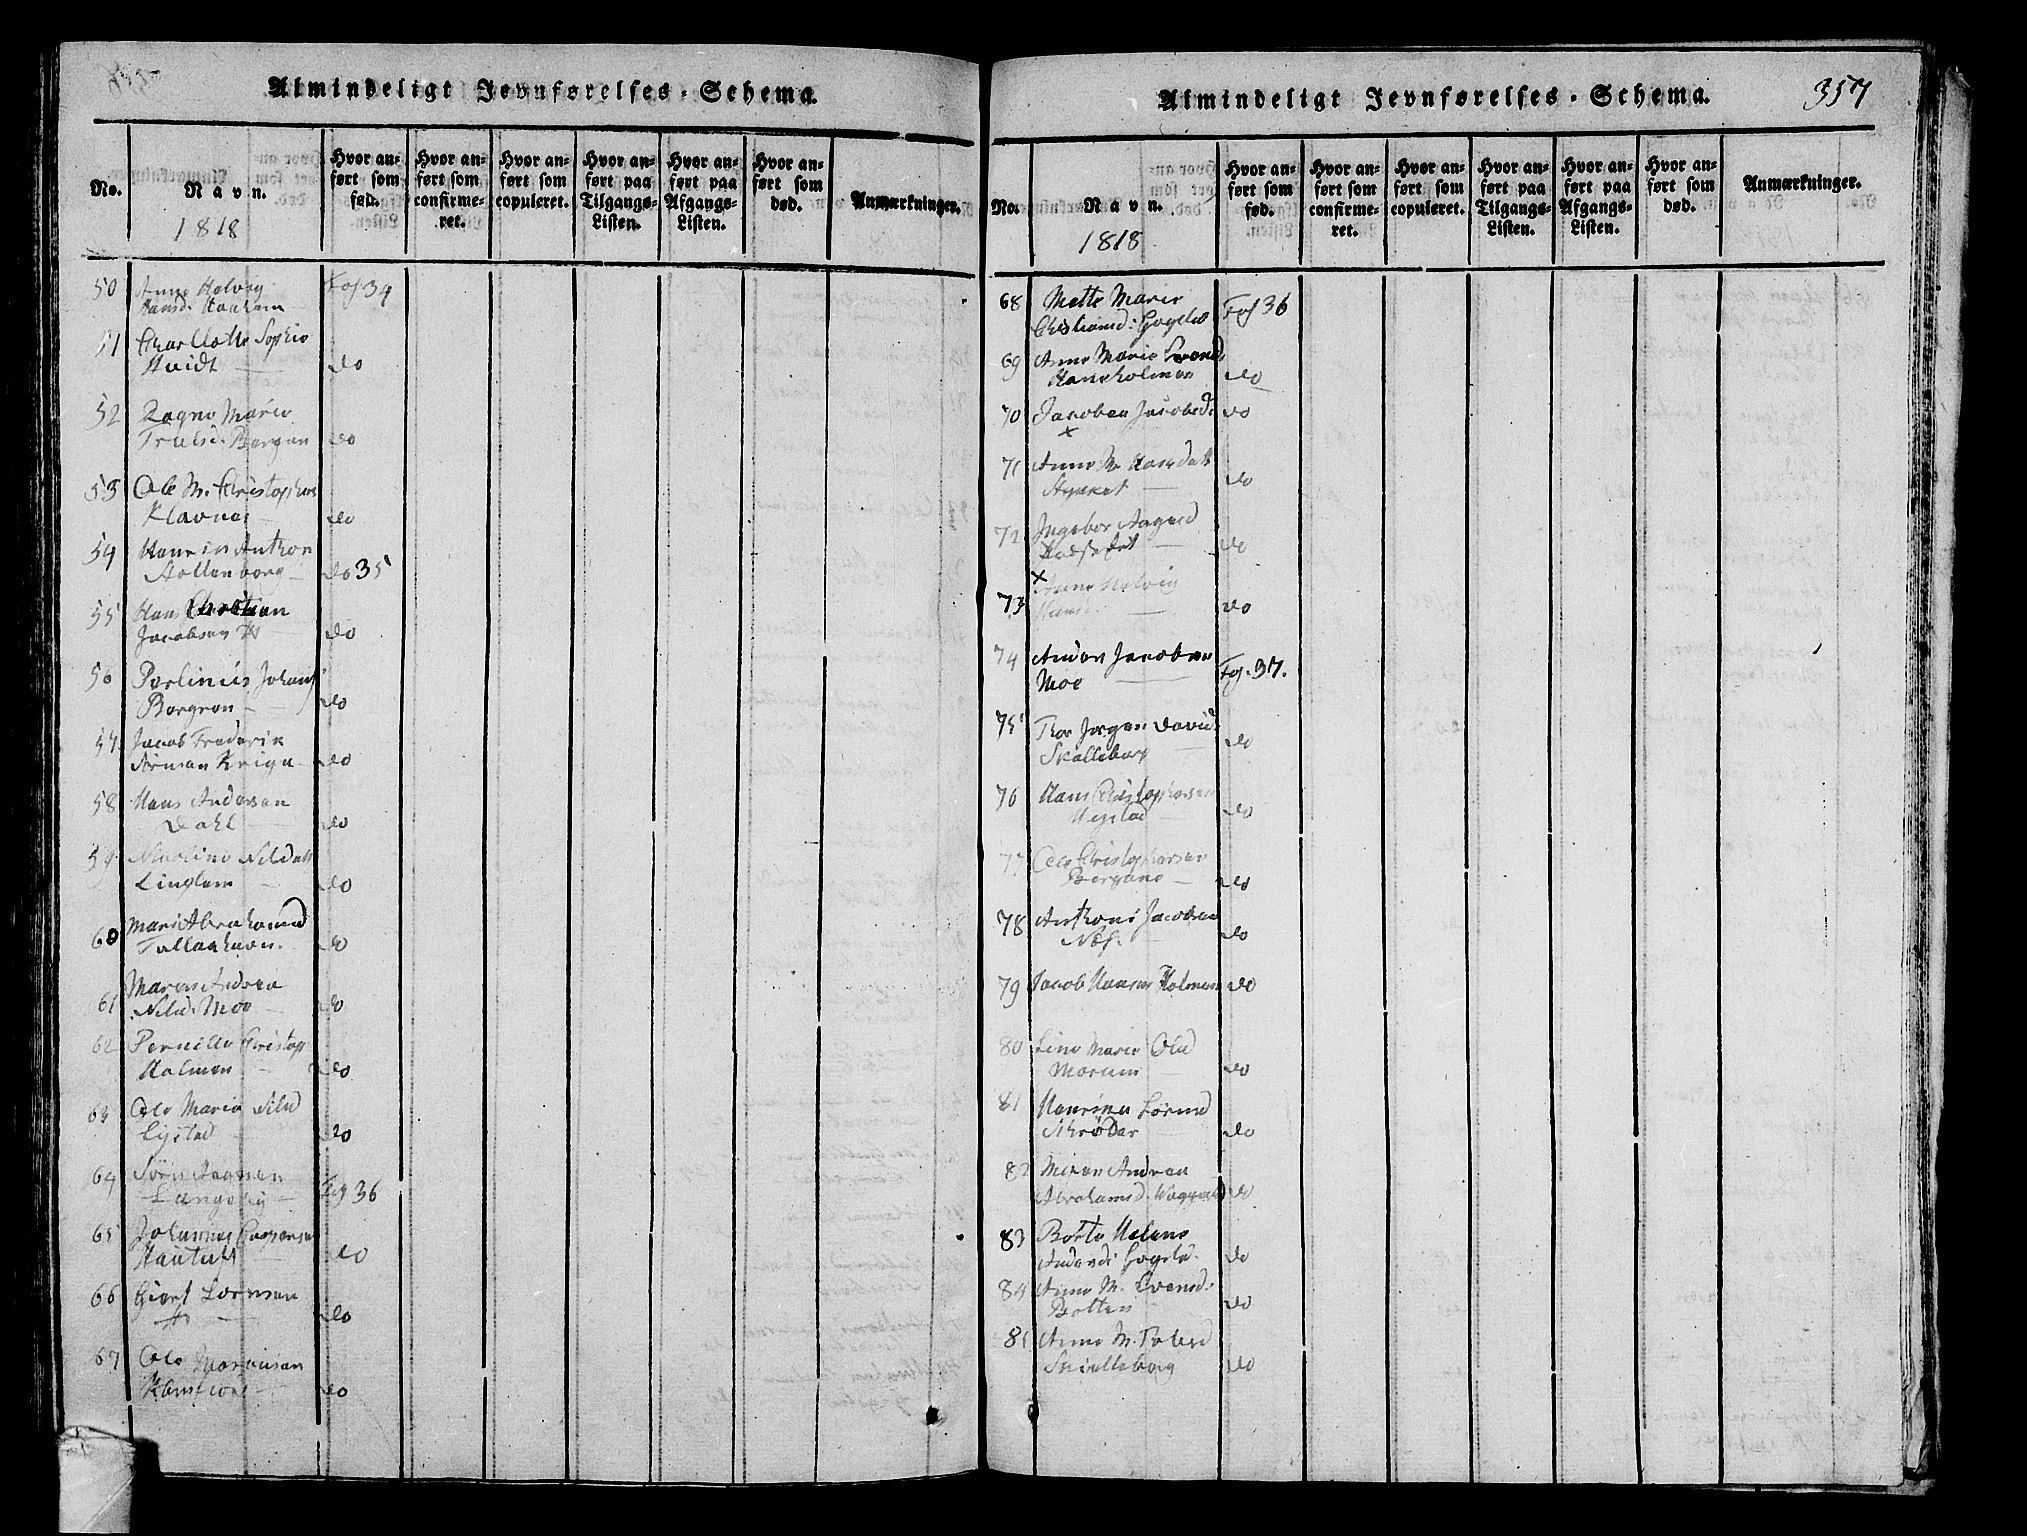 Almindeligt Jevnførelses-Schema.
No.
Navn.
1818
Hvor anført som fød.
Hvor anført som confirmeret.
Hvor anført som copuleret.
Hvor anført paa Tilgangs-Listen.
Hvor anført paa Afgangs-Listen.
Hvor anført som død.
Anmærkninger.
50 Anne Helvig Fol 34
Hansd.
51 Charllotte Sophie
Hvidt do
52 Ragne Marie
Trulsd. Bergan do
53 Ole M. Christophers
Klavnes do
54 Henrik Anthon
Hollenborg do 35
55 Hans Christian
Jacobsen do
56 Perlinus Johans
Borgron do
57 Jacob Frederik
Sørman Krign do
58 Hans Andersen
Dahl do
59 Nilsdatt
Linglem do
60 Mari Abrahamsd
do
61 Maren Andrea
Nilsd. Moe do
62 Pernille Christop
Holmen do
63 Ole Maria Nilsd
Lystad do
64 Sørn Aaresen
Langeby Fol 36
65 Johannes Caspersen
Hautuft do
66 Giert Lorensen
do
67 Ole Martinsen
do
Almindeligt Jevnførelses-Schema.
357
No.
Navn.
1818
Hvor anført som fød.
Hvor anført som confirmeret.
Hvor anført som copuleret.
Hvor anført paa Tilgangs-Listen.
Hvor anført paa Afgangs-Listen.
Hvor anført som død.
Anmærkninger.
68 Mette Marie Fol 36
Christiansd: Gogstad
69 Anne Marie Svends
Haneholmen do
70 Jacobea Jacobsd: do
x
71 Anne M Hansdatt
Stykket do
72 Ingebor Aagesd
do
x
73 Anne Helvig
Hansd. do
74 Anders Jacobsen
Moe Fol. 37.
75 Thor Jørgen Davids
Skalleberg do
76 Hans Christophersen
Hegstad do
77 Ole Christophersen
Bergane do
78 Anthoni Jacobsen
Næs. do
79 Jacob Hansen Holmen do
80 Line Marie Olsd
Morum do
81 Henrika Lorensd
Schrøder do
82 Maren Andrea
Abrahamsd. do
83 Berte Helene
Andersd: Gogstad. do
84 Anne M. Evensd:
Botten do
85 Anne M. Pedersd
Skielleberg do